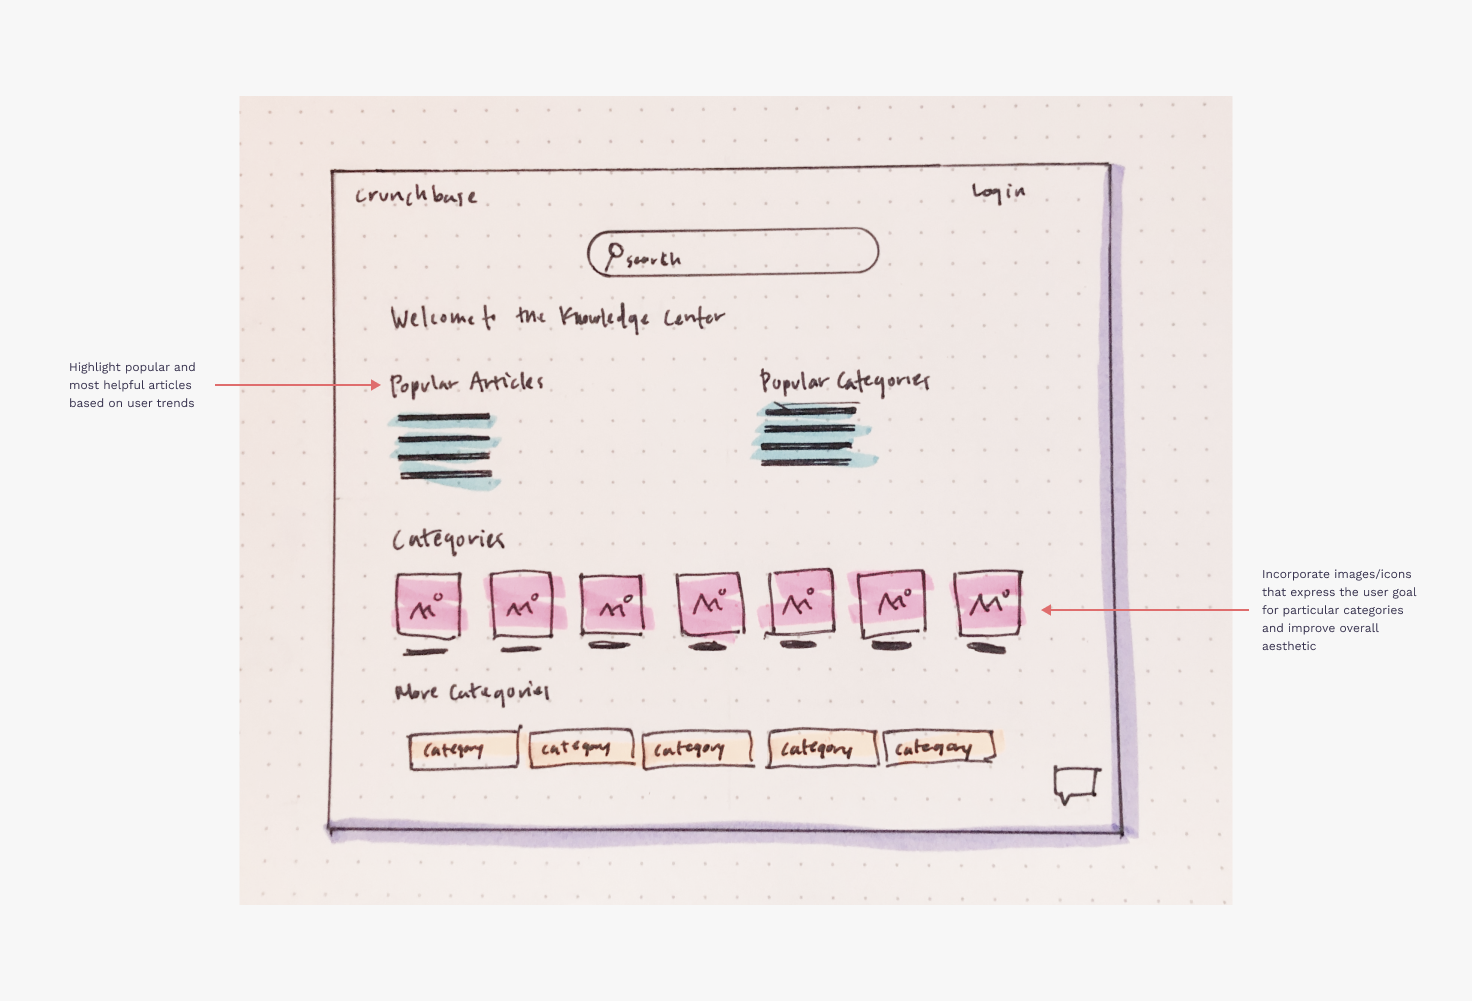 Crunchbase
Login
search
Welcome to the Knowledge Center
Highlight popular and
most helpful articles
based on user trends
Popular Articles
Popular Categories
Categories
Incorporate images/icons
that express the user goal
for particular categories
and improve overall
aesthetic
More Categories
Category
Category
Category
Category
Category